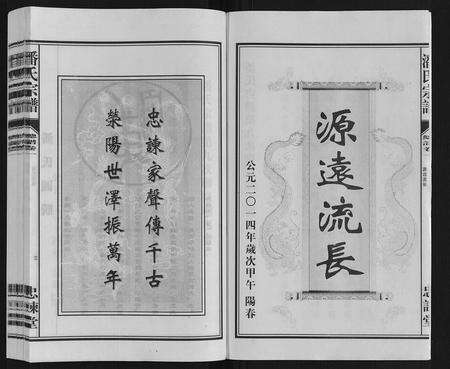 源遠流長
公元二〇一四年歲次甲午 陽春
忠諫家聲傳千古
榮陽世澤振萬年
潘氏宗譜
忠諫堂